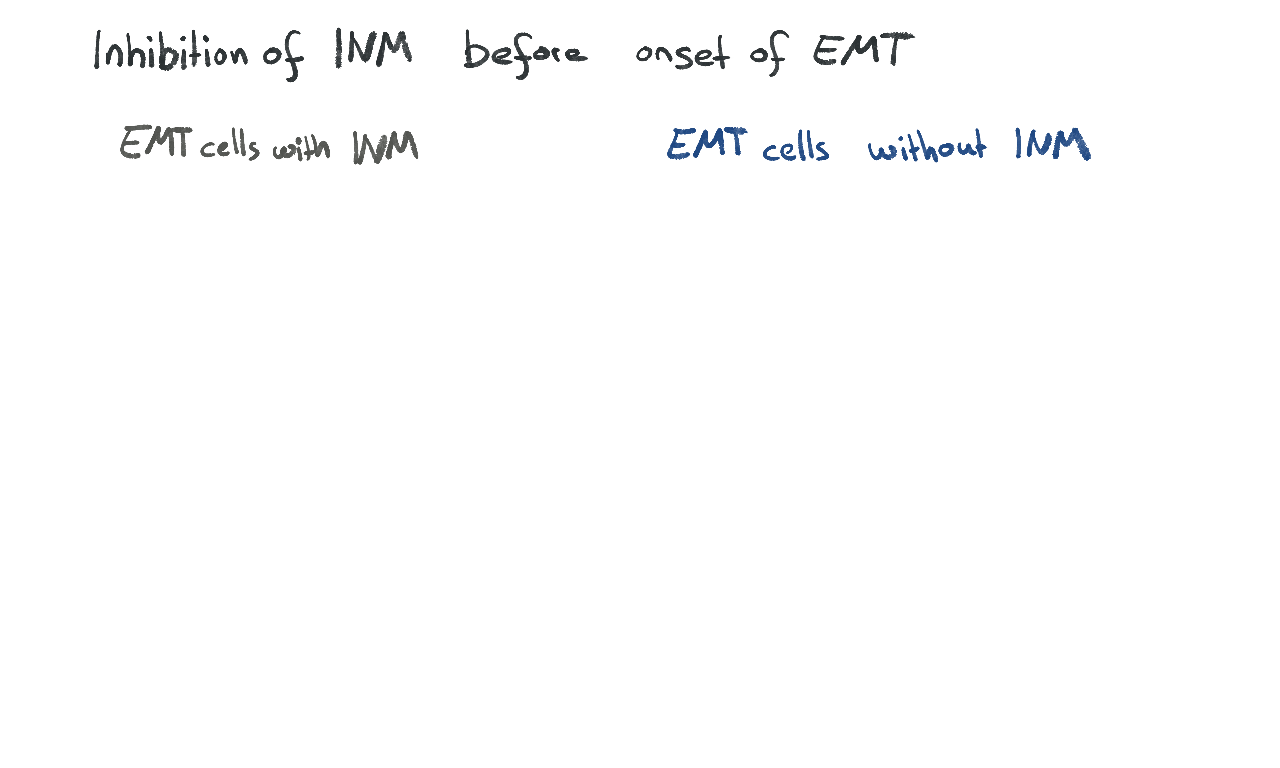 Inhibition of INM before onset of EMT
EMT cells with INM
EMT cells without INM